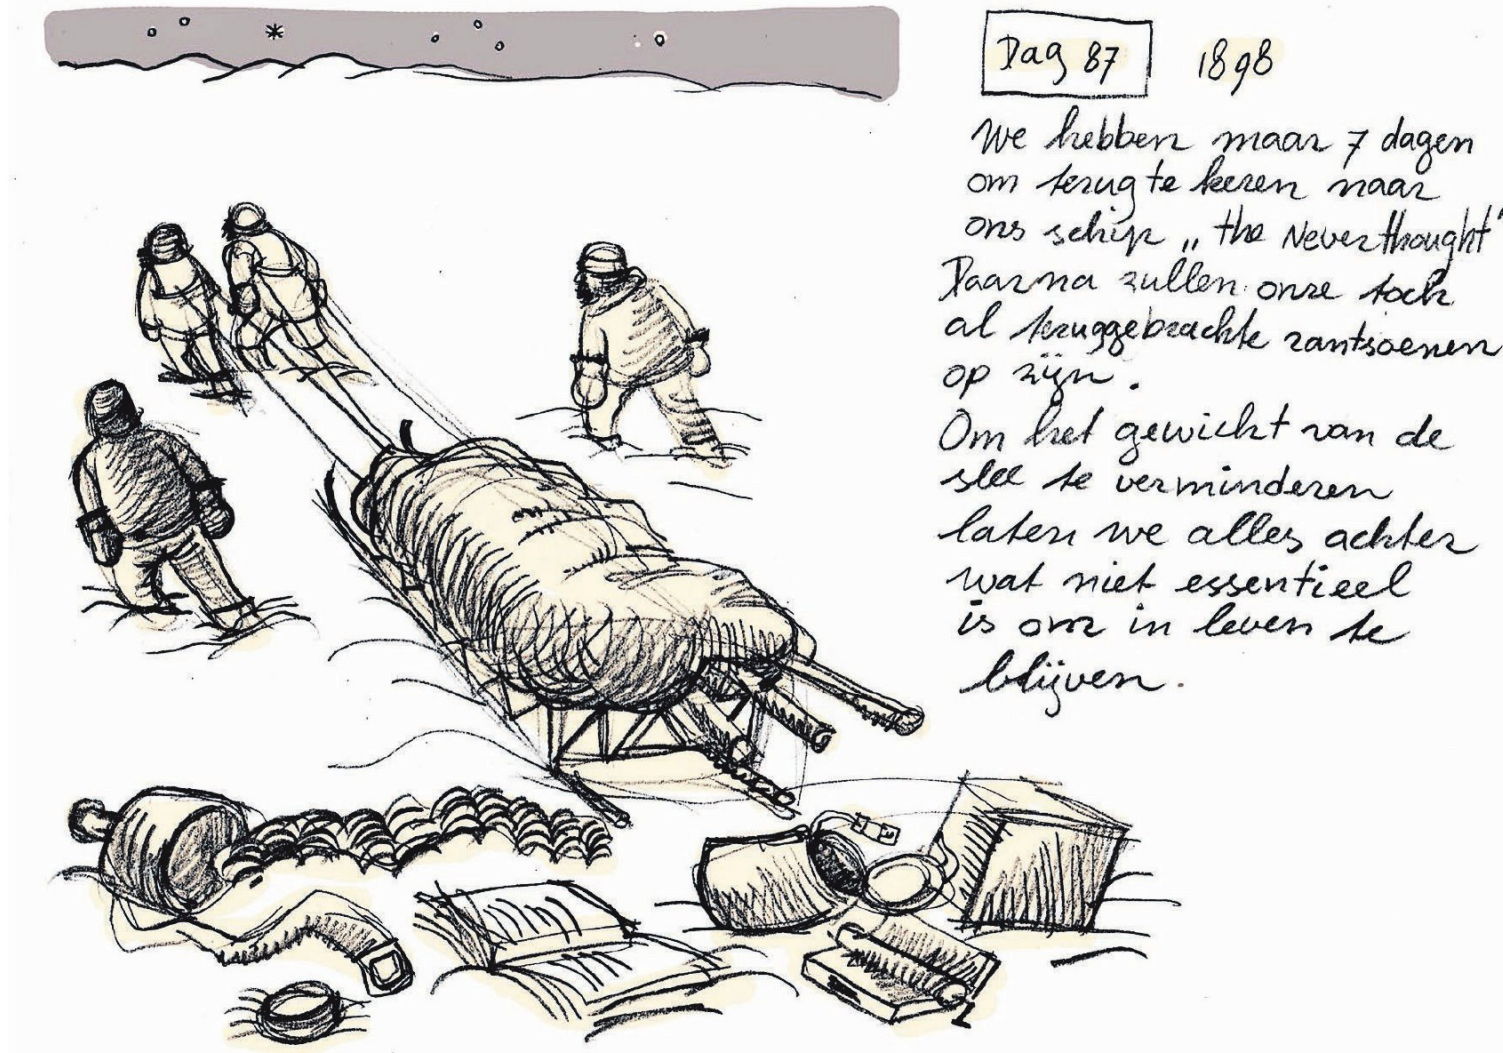 Dag 87 1898
We hebben maar 7 dagen
om terug te keren naar
ons schip „the Neverthought"
Daarna zullen onze toch
al teruggebrachte rantsoenen
op zijn.
Om het gewicht van de
slee te verminderen
laten we alles achter
wat niet essentieel
is om in leven te
blijven.